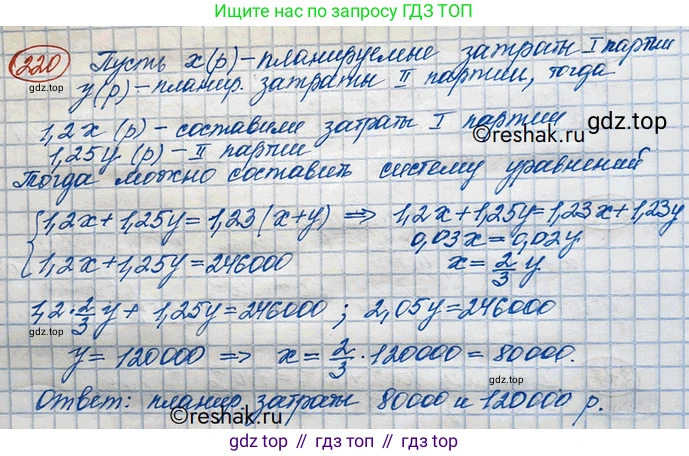 Ищите нас по запросу ГДЗ ТОП
220 Пусть x(р) – планируемые затраты I партии
y(р) – планир. затраты II партии, тогда
gdz.top
1,2x (р) – составили затраты I партии
1,25y (р) – II партии
©reshak.ru
Тогда можно составить систему уравнений
{1,2x+1,25y=1,23(x+y) ⇒ 1,2x+1,25y=1,23x+1,23y
0,03x=0,02y
1,2x+1,25y=246000
x=2/3 y.
1,2·2/3y+1,25y=246000; 2,05y=246000
gdz.top
y=120000 ⇒ x=2/3·120000=80000.
gdz.top
Ответ: планир. затраты 80000 и 120000 р.
©reshak.ru
gdz.top // гдз.топ // gdz.top // гдз.топ